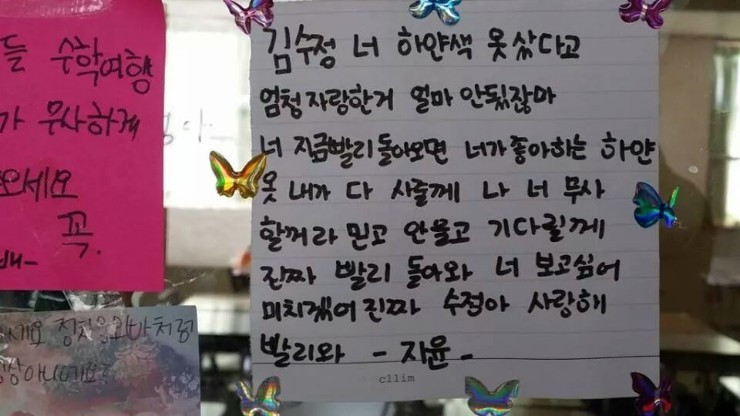 들 수학여행
가 무사하게
오세요
꼭.
김수정 너 하얀색 옷샀다고
엄청자랑한거 얼마 안됬잖아
너 지금빨리돌아오면 너가좋아하는 하얀
옷 내가 다 사줄께 나 너 무사
할꺼라 믿고 안울고 기다릴께
진짜 빨리 돌아와 너 보고싶어
미치겠어진짜 수정아 사랑해
빨리와 - 지윤 -
cllim